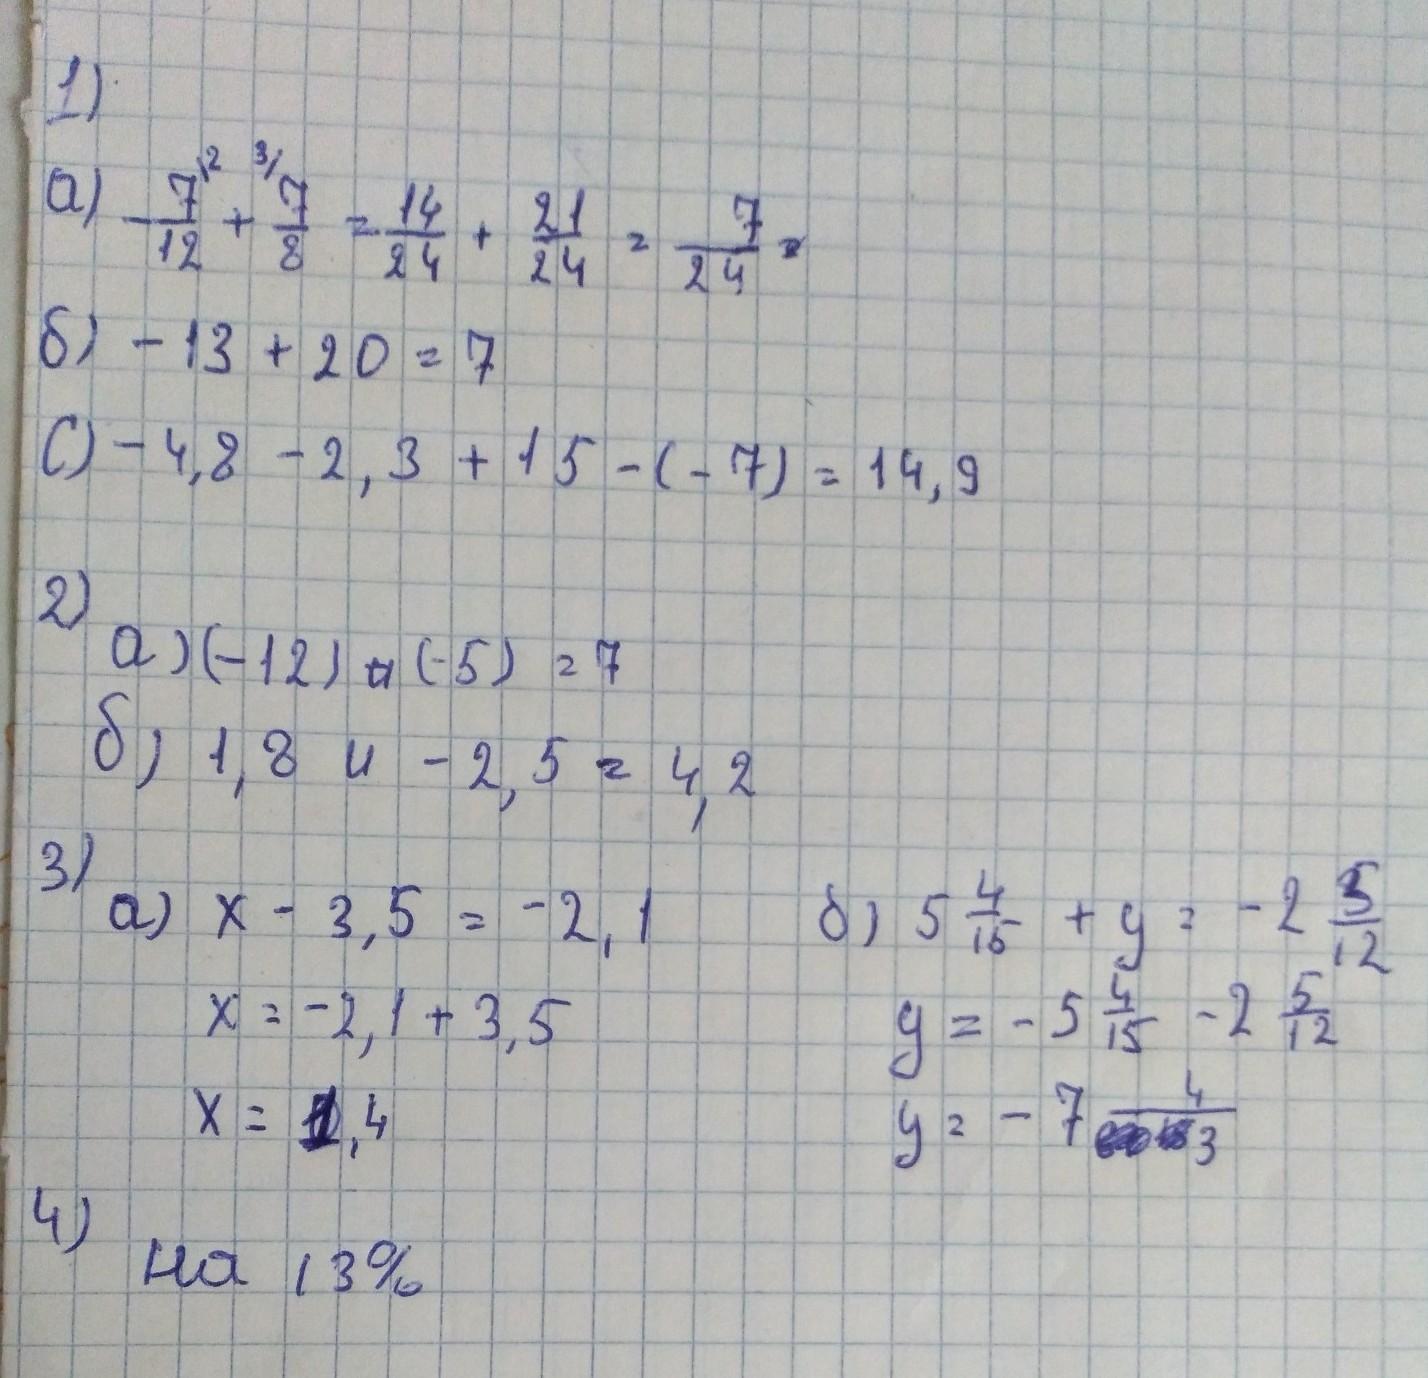 1)
а) -7/12 \2 + 3/ 7/8 = -14/24 + 21/24 = 7/24 =
б) -13 + 20 = 7
с) -4,8 - 2,3 + 15 - (-7) = 14,9
2)
а) (-12) и (-5) = 7
б) 1,8 и -2,5 = 4,2
3)
а) x - 3,5 = -2,1
x = -2,1 + 3,5
x = 1,4
б) 5 4/15 + y = -2 5/12
y = -5 4/15 - 2 5/12
y = -7 4/3
4)
на 13%